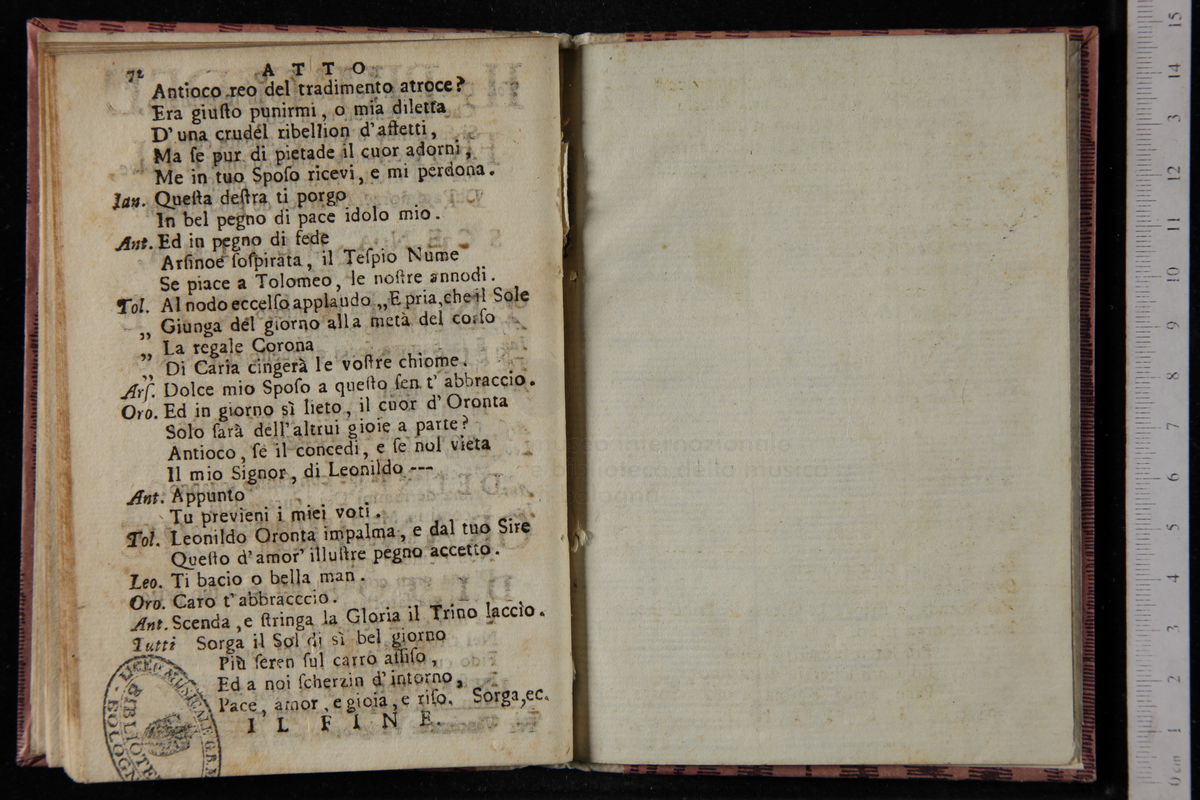 72 ATTO
Antioco reo del tradimento atroce?
Era giuſto punirmi, o mia diletta
D'una crudel ribellion d'affetti,
Ma ſe pur di pietade il cuor adorni,
Me in tuo Spoſo ricevi, e mi perdona.
Ian. Queſta deſtra ti porgo
In bel pegno di pace idolo mio.
Ant. Ed in pegno di fede
Arſinoe ſoſpirata, il Teſpio Nume
Se piace a Tolomeo, le noſtre annodi.
Tol. Al nodo eccelſo applaudo „E pria, che il Sole
„ Giunga del giorno alla metà del corſo
„ La regale Corona
„ Di Caria cingerà le voſtre chiome.
Arſ. Dolce mio Spoſo a queſto ſen t' abbraccio.
Oro. Ed in giorno sì lieto, il cuor d' Oronta
Solo ſarà dell' altrui gioie a parte?
Antioco, ſe il concedi, e ſe nol vieta
Il mio Signor, di Leonildo ---
Ant. Appunto
Tu previeni i miei voti.
Tol. Leonildo Oronta impalma, e dal tuo Sire
Queſto d'amor' illuſtre pegno accetto.
Leo. Ti bacio o bella man.
Oro. Caro t' abbracccio.
Ant. Scenda, e ſtringa la Gloria il Trino laccio.
Tutti Sorga il Sol di sì bel giorno
Più ſeren ſul carro aſſiſo,
Ed a noi ſcherzin d' intorno,
Pace, amor, e gioia, e riſo. Sorga, ec.
IL FINE.
LICEO MUSICALE
BIBLIOTE
BOLOGN
museo internazionale
e biblioteca della musica
di bologna
0 cm 1 2 3 4 5 6 7 8 9 10 11 12 3 14 15